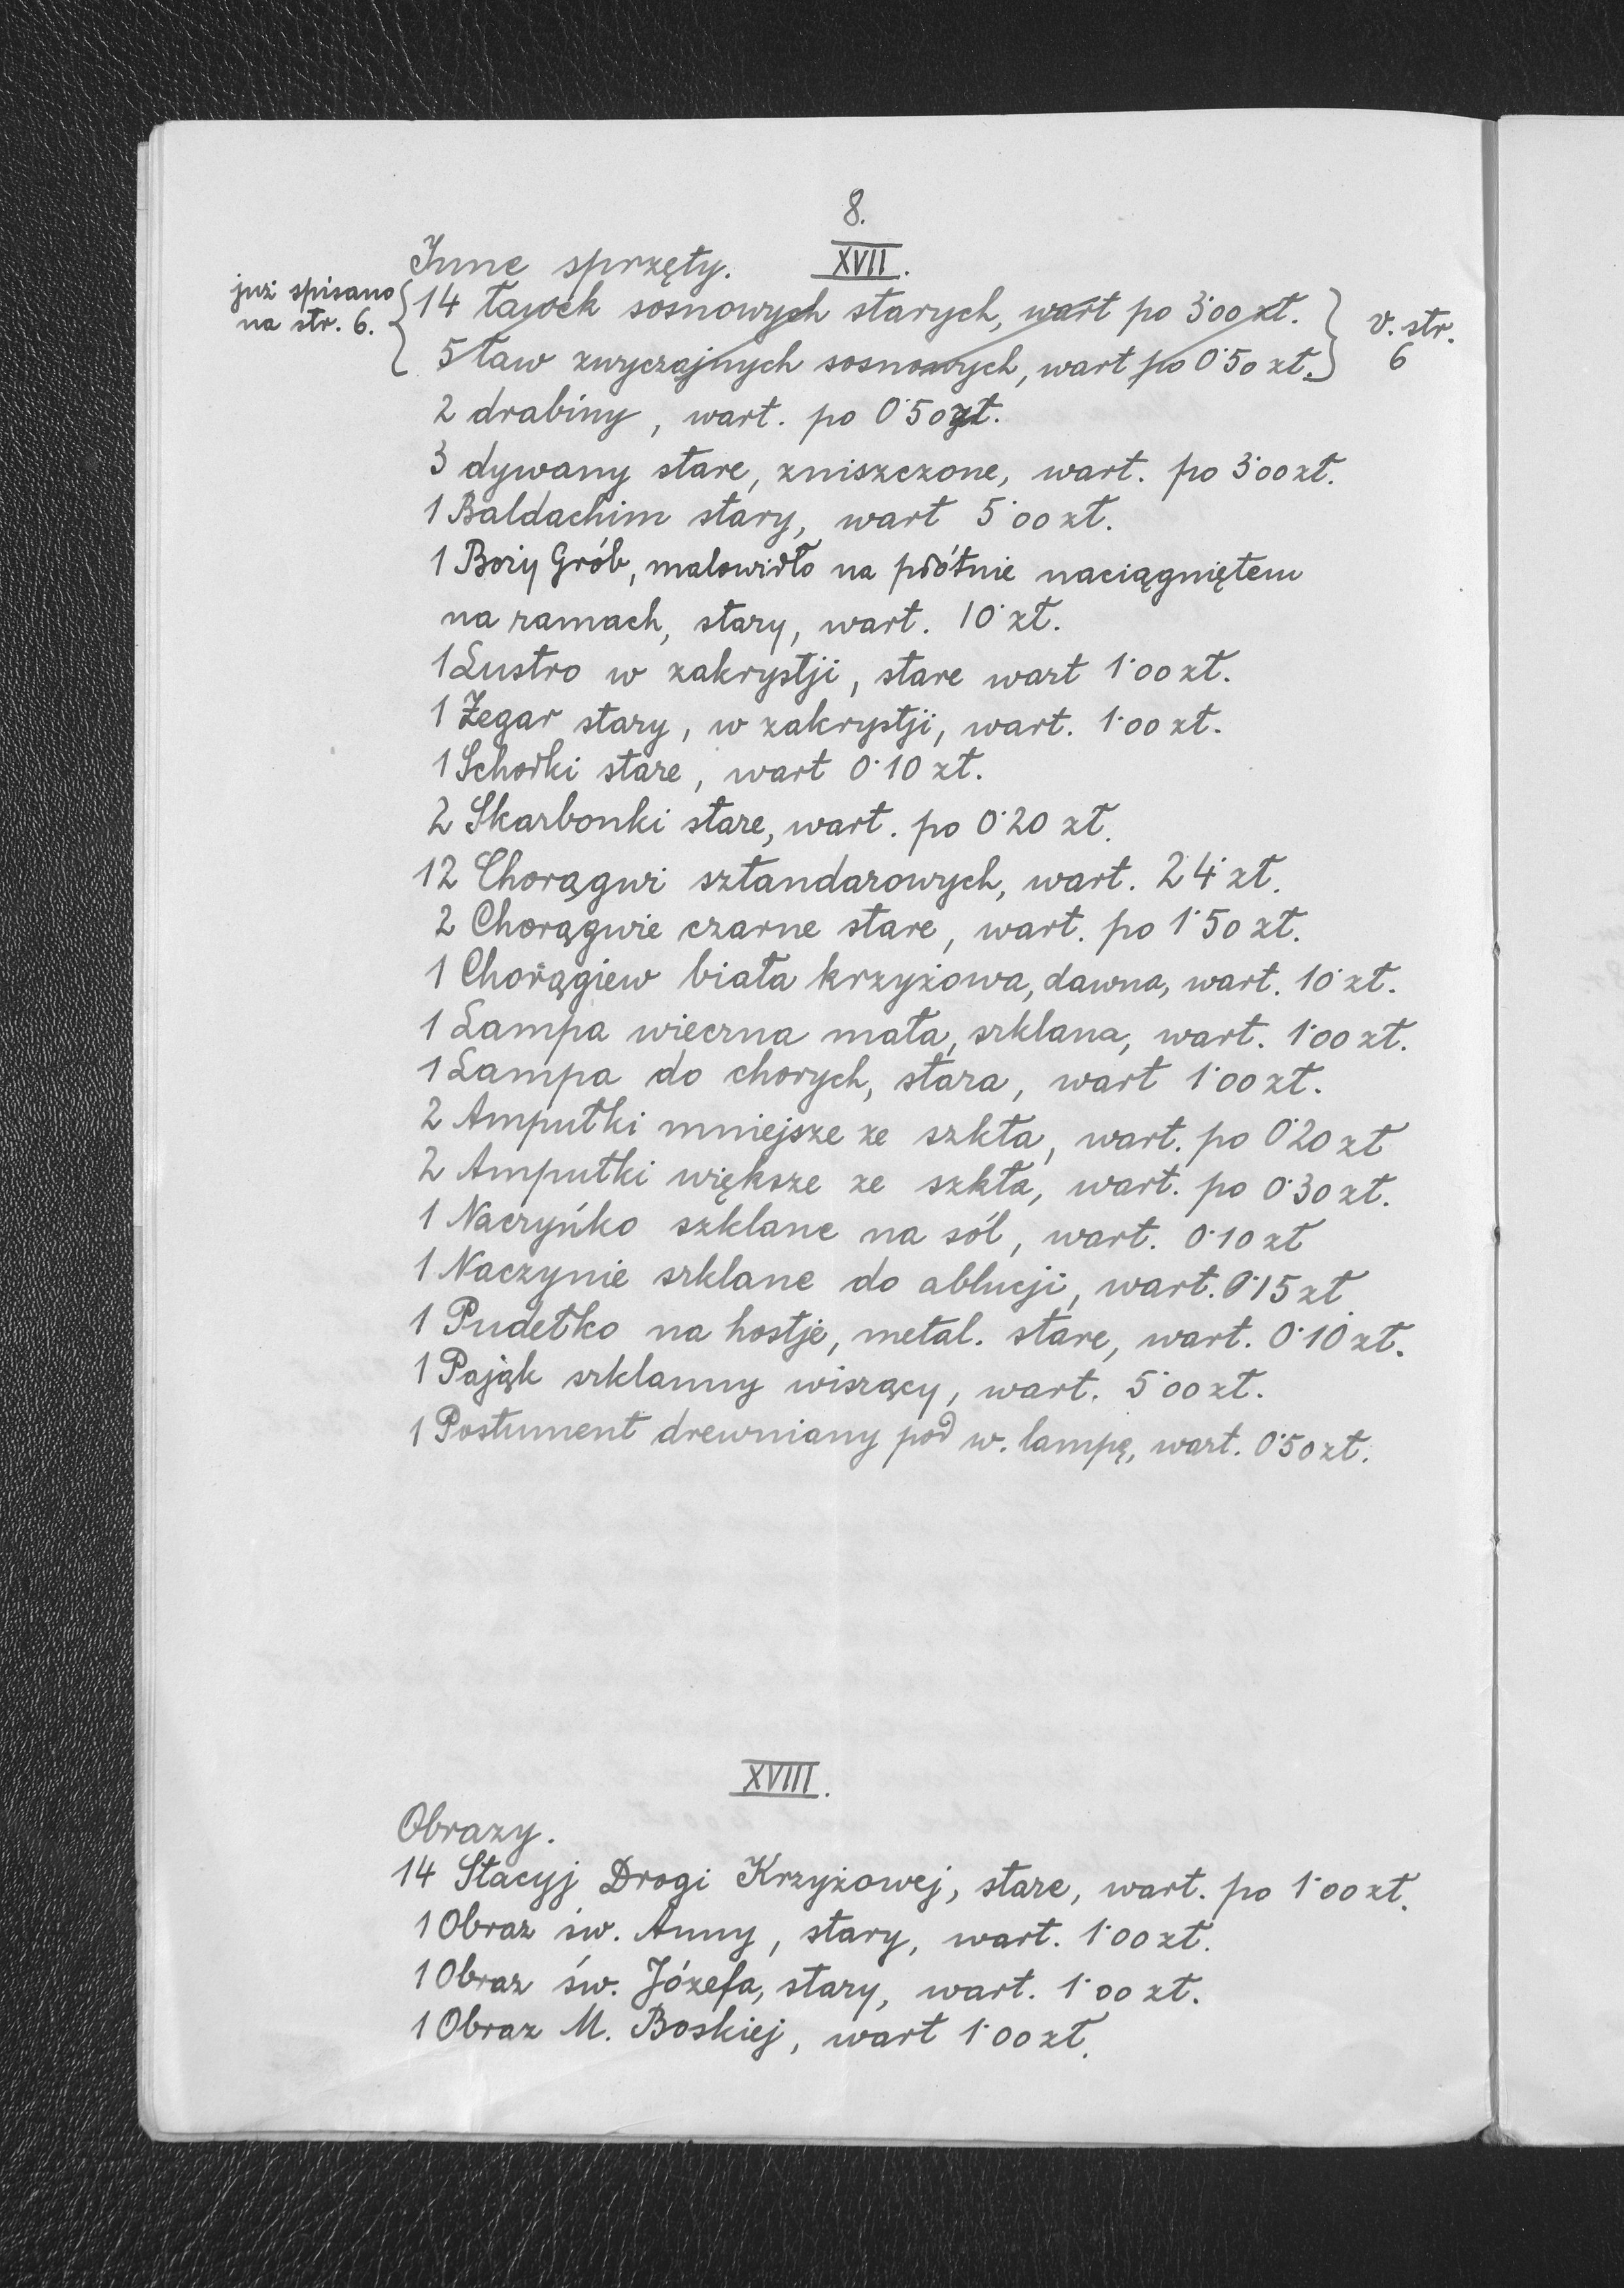 8.
XVII.
Inne sprzęty.
już spisano
na str. 6.
14 ławek sosnowych starych, wart po 3˙00 zł.
v. str.
6
5 ław zwyczajnych sosnowych, wart po 0˙50 zł.
2 drabiny, wart. po 0˙50 zł.
3 dywany stare, zniszczone, wart. po 3˙00 zł.
1 Baldachim stary, wart 5˙00 zł.
1 Boży Grób, malowidło na płótnie naciągniętem
na ramach, stary, wart. 10˙ zł.
1 Lustro w zakrystji, stare wart 1˙00 zł.
1 Zegar stary, w zakrystji, wart. 1˙00 zł.
1 Schodki stare, wart 0˙10 zł.
2 Skarbonki stare, wart. po 0˙20 zł.
12 Chorągwi sztandarowych, wart. 24˙ zł.
2 Chorągwie czarne stare, wart. po 1˙50 zł.
1 Chorągiew biała krzyżowa, dawna, wart. 10˙ zł.
1 Lampa wieczna mała, szklana, wart. 1˙00 zł.
1 Lampa do chorych, stara, wart 1˙00 zł.
2 Ampułki mniejsze ze szkła, wart. po 0˙20 zł
2 Ampułki większe ze szkła, wart. po 0˙30 zł.
1 Naczyńko szklane na sól, wart. 0˙10 zł
1 Naczynie szklane do ablucji, wart. 0˙15 zł.
1 Pudełko na hostje, metal. stare, wart. 0˙10 zł.
1 Pająk szklanny wiszący, wart. 5˙00 zł.
1 Postument drewniany pod w. lampę, wart. 0˙50 zł.
XVIII.
Obrazy.
14 Stacyj Drogi Krzyżowej, stare, wart. po 1˙00 zł.
1 Obraz św. Anny, stary, wart. 1˙00 zł.
1 Obraz św. Józefa, stary, wart. 1˙00 zł.
1 Obraz M. Boskiej, wart 1˙00 zł.